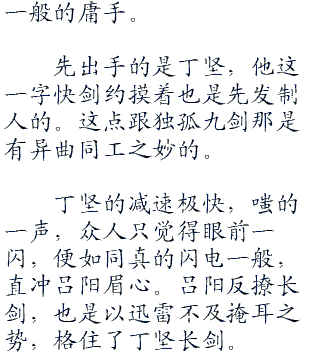 一般的庸手。
先出手的是丁坚，他这
一字快剑约摸着也是先发制
人的。这点跟独孤九剑那是
有异曲同工之妙的。
丁坚的减速极快，嗤的
一声，众人只觉得眼前一
闪，便如同真的闪电一般，
直冲吕阳眉心。吕阳反撩长
剑，也是以迅雷不及掩耳之
势，格住了丁坚长剑。